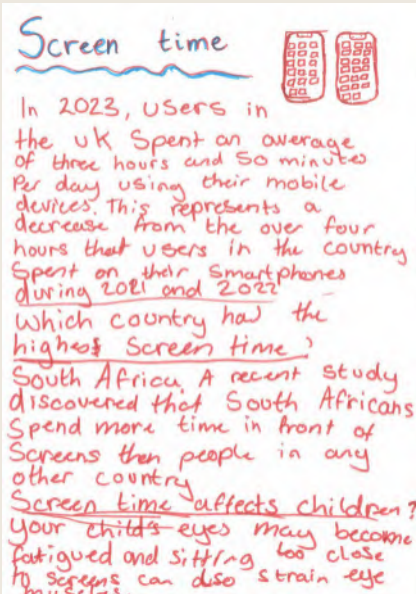 Screen time
In 2023, users in
the UK spent an average
of three hours and 50 minutes
per day using their mobile
devices. This represents a
decrease from the over four
hours that users in the country
spent on their smartphones
during 2021 and 2022
which country had the
highest screen time?
South Africa. A recent study
discovered that South Africans
spend more time in front of
screens then people in any
other country
Screen time affects children?
your child's eyes may become
fatigued and sitting too close
to screens can also strain eye
muscles.